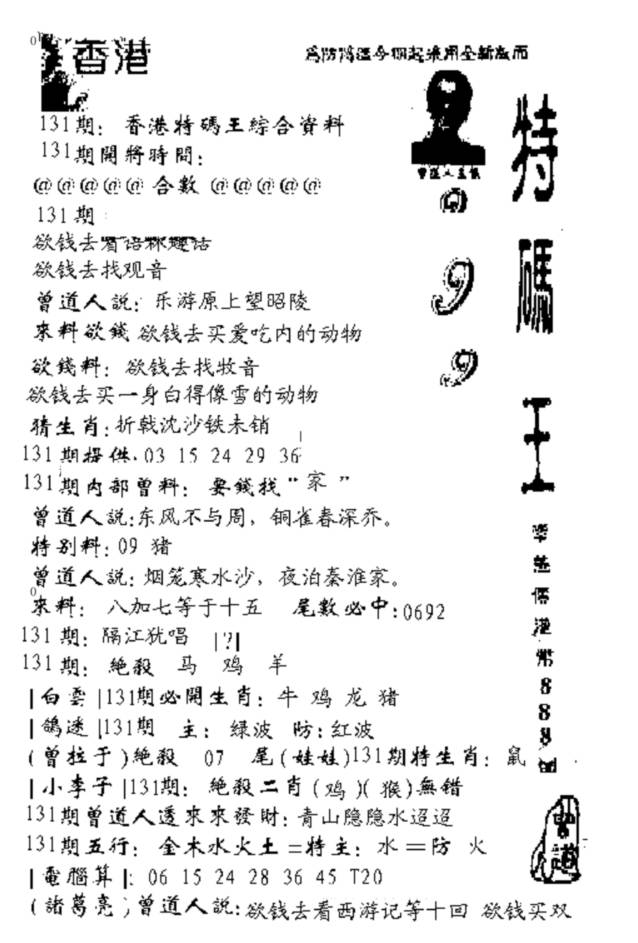 香港
為防假冒今期起采用全新版面
131期: 香港特碼王綜合資料
131期開將時間:
@@@@@合數@@@@@
131期:
欲钱去看
欲钱去找观音
曾道人説: 乐游原上望昭陵
來料欲錢 欲钱去买爱吃内的动物
欲錢料: 欲钱去找牧音
欲钱去买一身白得像雪的动物
猜生肖:折戟沈沙铁未销
131期提供:03 15 24 29 36
131期内部曾料: 要錢找"家"
曾道人説:东风不与周，铜雀春深乔。
特别料:09 猪
曾道人説: 烟笼寒水沙，夜泊秦淮家。
來料: 八加七等于十五 尾數必中:0692
131期: 隔江犹唱 |?|
131期: 絶殺 马 鸡 羊
|白雲|131期必開生肖: 牛 鸡 龙 猪
|鴿迷|131期 主: 绿波 防:红波
(曾拉于)絶殺 07 尾(娃娃)131期特生肖: 鼠
|小李子|131期: 絶殺二肖(鸡)(猴)無错
131期曾道人透來來發財:青山隐隐水迢迢
131期五行: 金木水火土=特主: 水=防 火
|電腦算|: 06 15 24 28 36 45 T20
(諸葛亮)曾道人説:欲钱去看西游记等十回 欲钱买双
特碼王
888
曾道